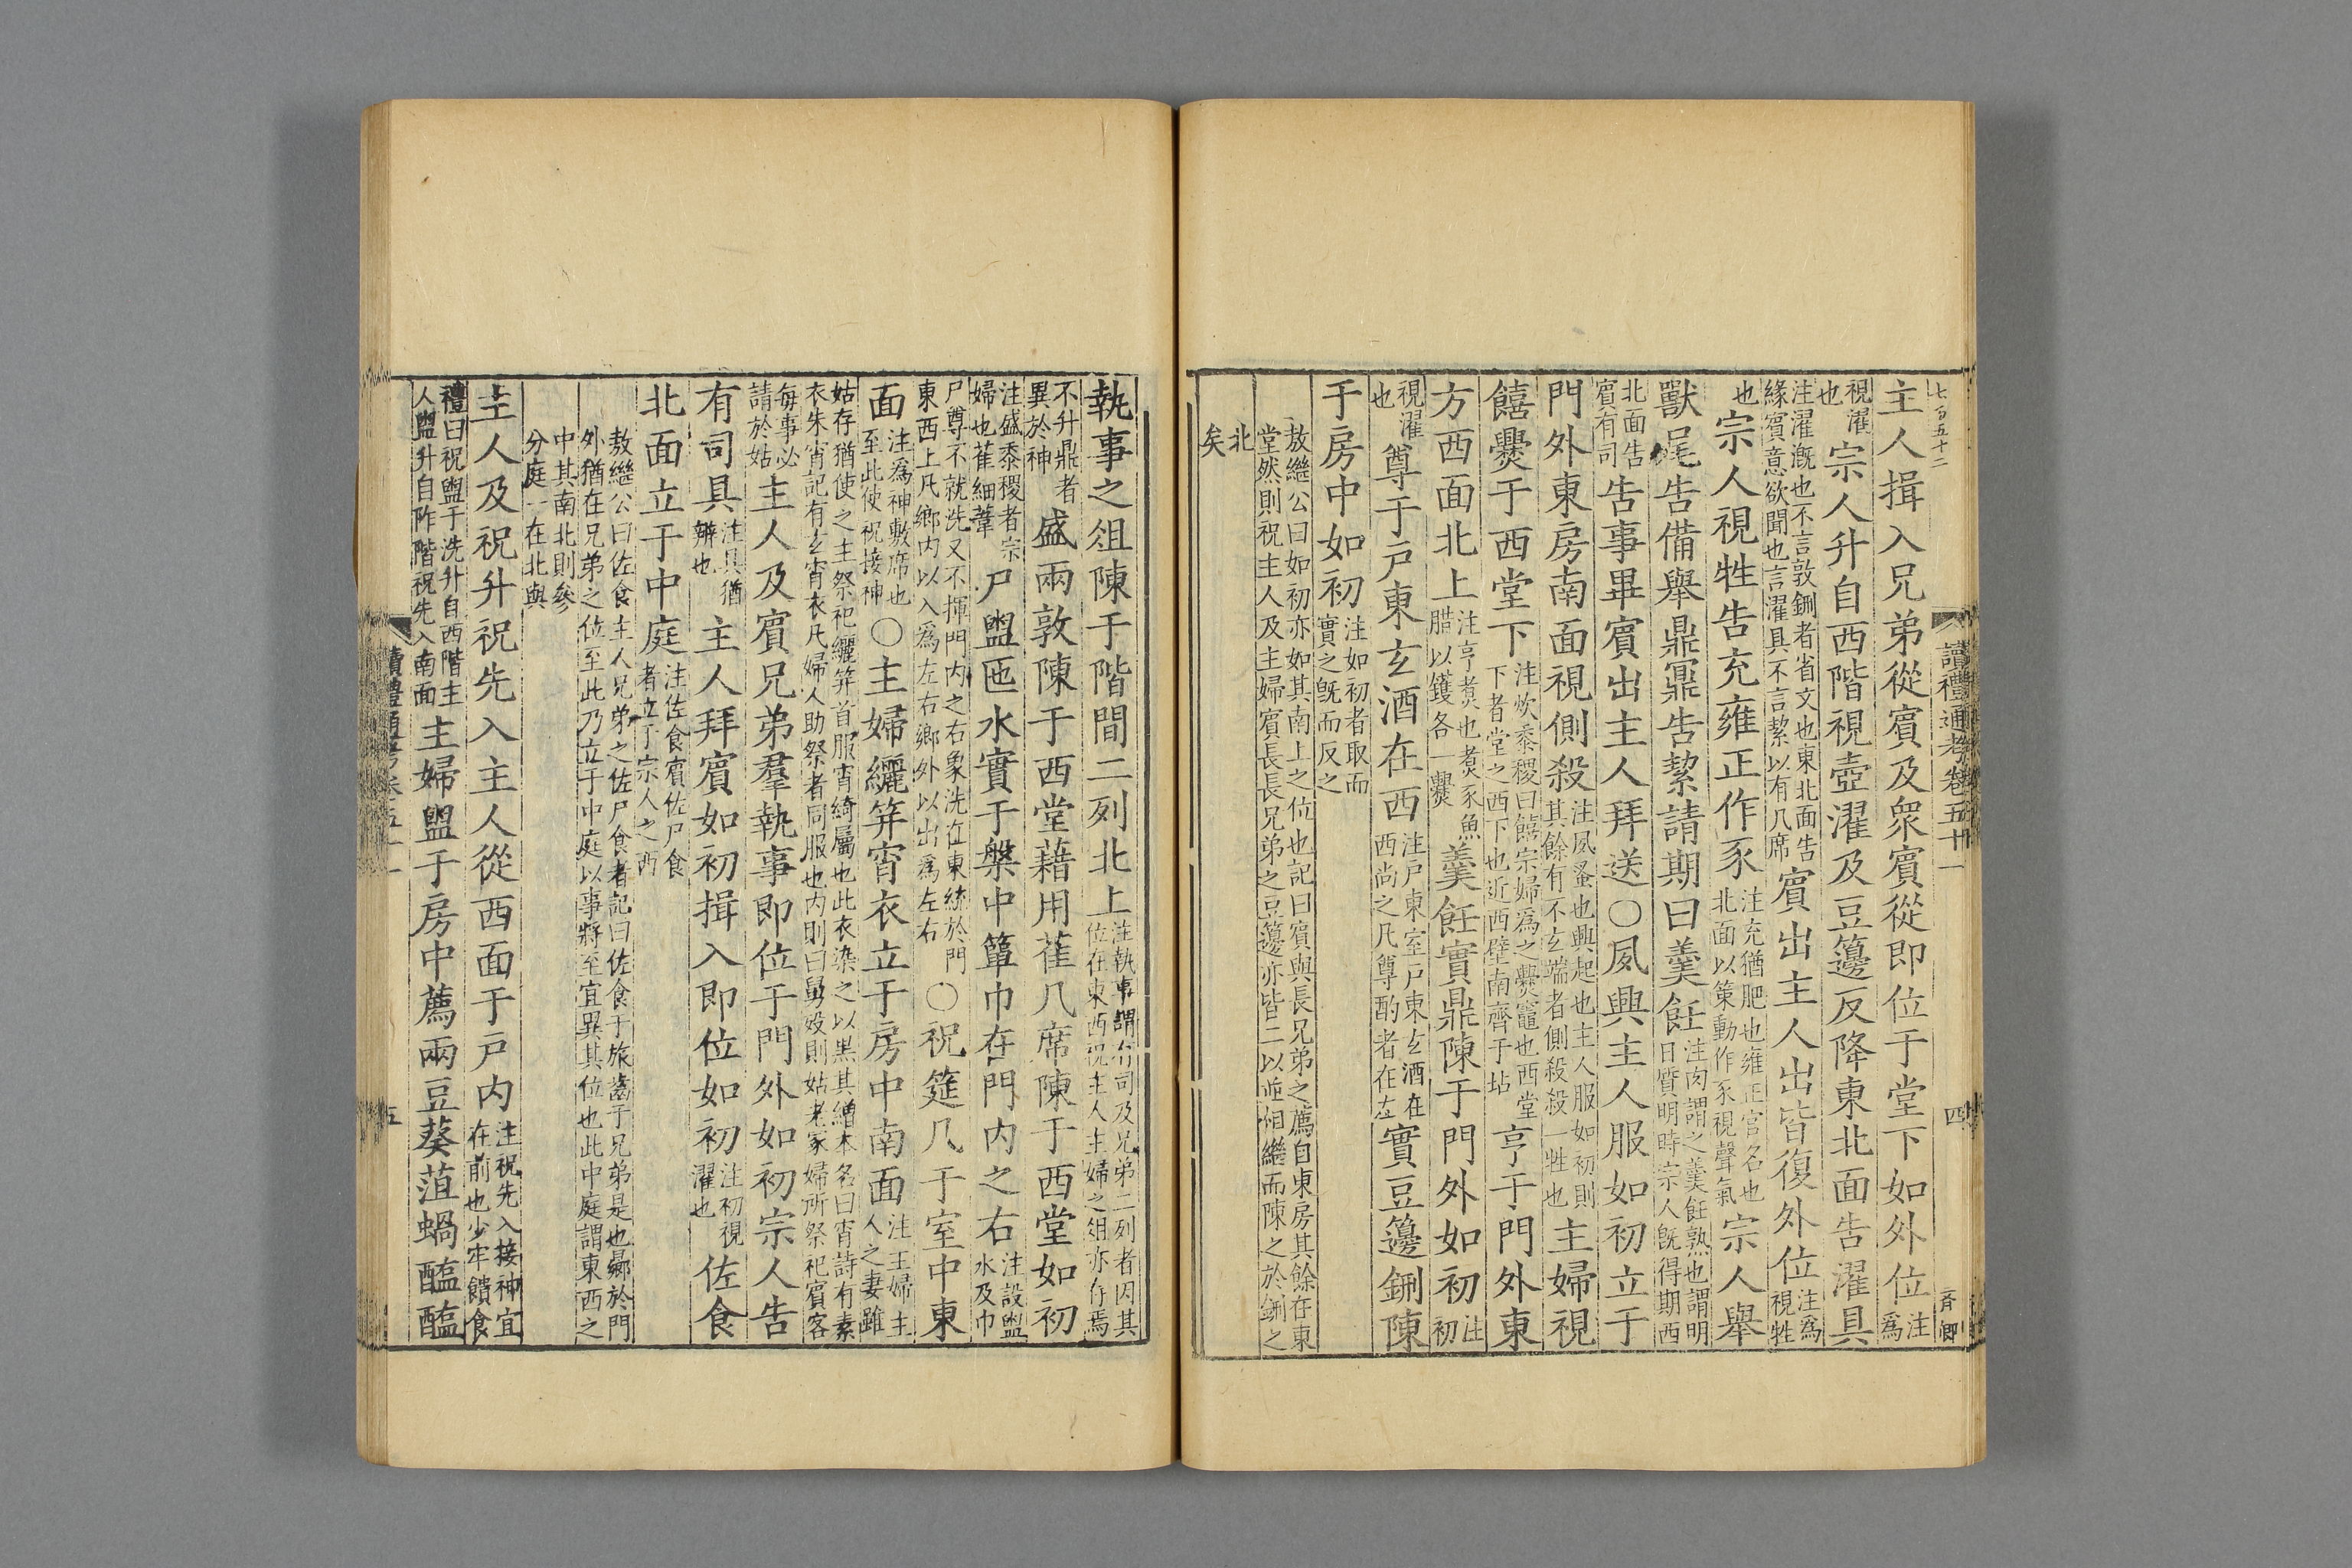 七百五十二
讀禮通考卷五十一
四
主人揖入兄弟從賓及眾賓從即位于堂下如外位注爲
視濯也宗人升自西階視壺濯及豆籩反降東北面告濯具
注濯漑也不言敦鉶者省文也東北面告緣賓意欲聞也言濯具不言絜以有几席賓出主人出皆復外位注爲視牲
也宗人視牲告充雍正作豕注充猶肥也雍正官名也北面以策動作豕視聲氣宗人舉
獸尾告備舉鼎鼏告絜請期曰羹飪注肉謂之羹飪熟也謂明日質明時宗人旣得期西
北面告賓有司告事畢賓出主人拜送○夙興主人服如初立于
門外東房南面視側殺注夙蚤也興起也主人服如初則其餘有不玄端者側殺殺一牲也主婦視
饎爨于西堂下注炊黍稷曰饎宗婦爲之爨竈也西堂下者堂之西下也近西壁南齊于坫亨于門外東
方西面北上注亨煮也煮豕魚腊以鑊各一爨羹飪實鼎陳于門外如初注初
視濯也尊于戶東玄酒在西注戶東室戶東玄酒在西尚之凡尊酌者在左實豆籩鉶陳
于房中如初注如初者取而實之旣而反之
敖繼公曰如初亦如其南上之位也記曰賓與長兄弟之薦自東房其餘在東
堂然則祝主人及主婦賓長長兄弟之豆籩亦皆二以竝相繼而陳之於鉶之
北矣
執事之俎陳于階間二列北上注執事謂有司及兄弟二列者因其位在東西祝主人主婦之俎亦存焉
不升鼎者異於神盛兩敦陳于西堂藉用萑几席陳于西堂如初
注盛黍稷者宗婦也萑細葦尸盥匜水實于槃中簞巾在門內之右注設盥水及巾
尸尊不就洗又不揮門內之右象洗在東統於門東西上凡鄉內以入爲左右鄉外以出爲左右○祝筵几于室中東
面注爲神敷席也至此使祝接神○主婦纚筓宵衣立于房中南面注主婦主人之妻雖
姑存猶使之主祭祀纚筓首服宵綺屬也此衣染之以黑其繒本名曰宵詩有素
衣朱宵記有玄宵衣凡婦人助祭者同服也內則曰舅歿則姑老冢婦所祭祀賓客
每事必請於姑主人及賓兄弟羣執事即位于門外如初宗人告
有司具注具猶辦也主人拜賓如初揖入即位如初注初視濯也佐食
北面立于中庭注佐食賓佐尸食者立于宗人之西
敖繼公曰佐食主人兄弟之佐尸食者記曰佐食于旅齒于兄弟是也曏於門
外猶在兄弟之位至此乃立于中庭以事將至宜異其位也此中庭謂東西之
中其南北則參分庭一在北與
主人及祝升祝先入主人從西面于戶內注祝先入接神宜在前也少牢饋食
禮曰祝盥于洗升自西階主人盥升自阼階祝先入南面主婦盥于房中薦兩豆葵菹蝸醢醢
五